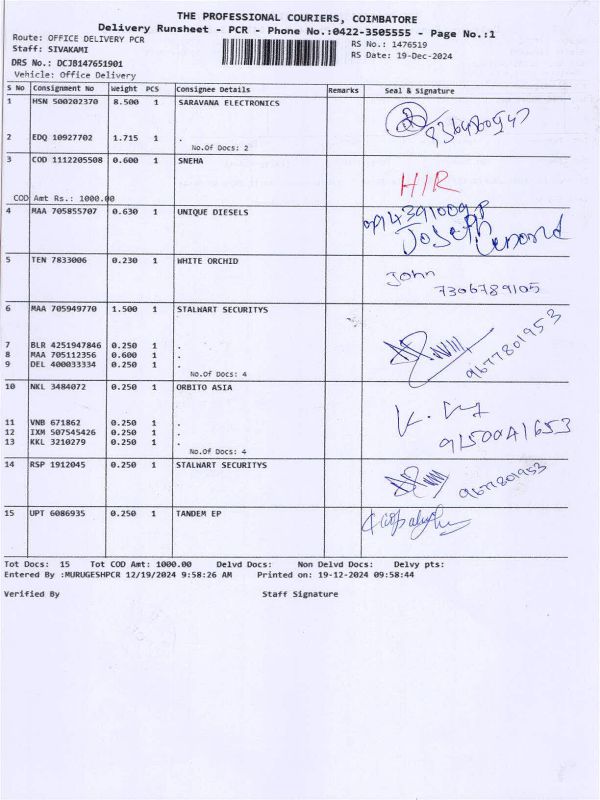 THE PROFESSIONAL COURIERS, COIMBATORE
Delivery Runsheet - PCR - Phone No.:0422-3505555 - Page No.:1
Route: OFFICE DELIVERY PCR
RS No.: 1476519
Staff: SIVAKAMI
RS Date: 19-Dec-2024
DRS No.: DCJB147651901
Vehicle: Office Delivery
S No Consignment No Weight PCS Consignee Details Remarks Seal & Signature
1 HSN 500202370 8.500 1 SARAVANA ELECTRONICS
2 EDQ 10927702 1.715 1 .
No.Of Docs: 2
3 COD 1112205508 0.600 1 SNEHA
H/R
COD Amt Rs.: 1000.00
4 MAA 705855707 0.630 1 UNIQUE DIESELS
Joseph
5 TEN 7833006 0.230 1 WHITE ORCHID
John
7306789105
6 MAA 705949770 1.500 1 STALWART SECURITYS
9677801953
7 BLR 4251947846 0.250 1 .
8 MAA 705112356 0.600 1 .
9 DEL 400033334 0.250 1 .
No.Of Docs: 4
10 NKL 3484072 0.250 1 ORBITO ASIA
9150041653
11 VNB 671862 0.250 1 .
12 IXM 507545426 0.250 1 .
13 KKL 3210279 0.250 1 .
No.Of Docs: 4
14 RSP 1912045 0.250 1 STALWART SECURITYS
9677801953
15 UPT 6086935 0.250 1 TANDEM EP
Tot Docs: 15 Tot COD Amt: 1000.00 Delvd Docs: Non Delvd Docs: Delvy pts:
Entered By :MURUGESHPCR 12/19/2024 9:58:26 AM Printed on: 19-12-2024 09:58:44
Verified By Staff Signature